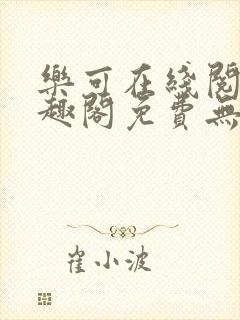 樂可在綫閱
趣閣免費無
崔小波